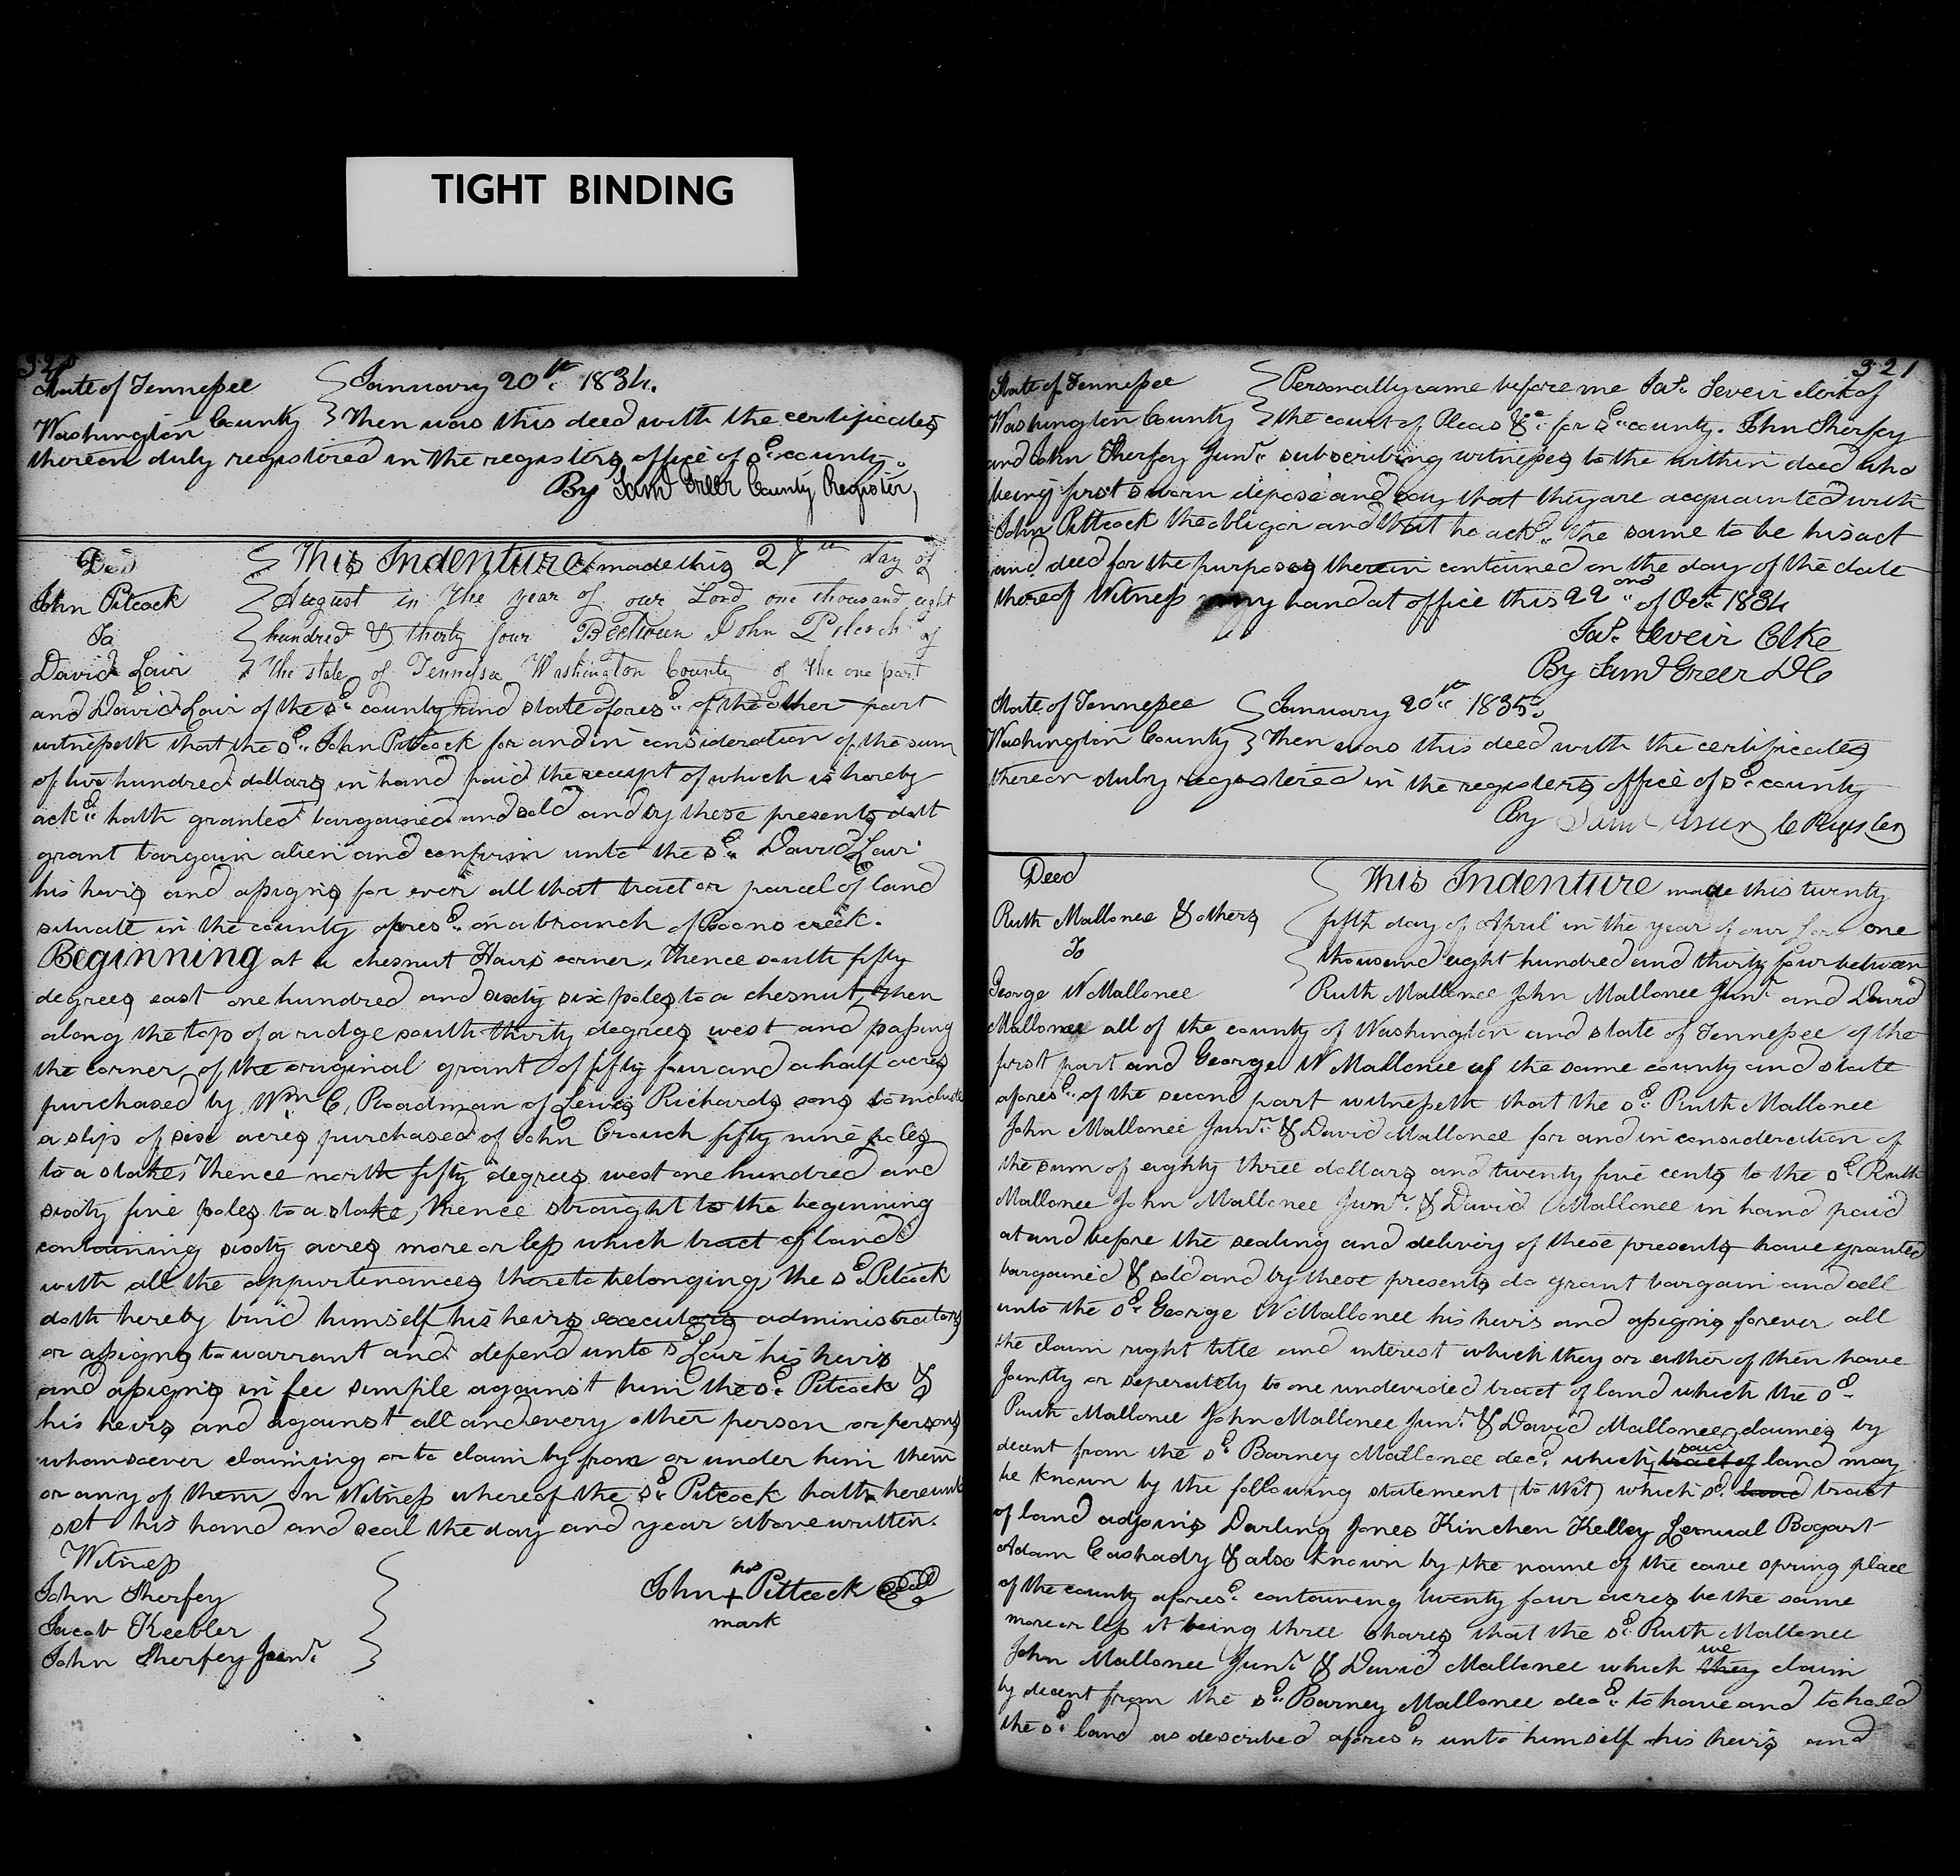 TIGHT BINDING
320
State of Tennessee January 20th 1834.
Washington County Then was this deed with the certificates
thereon duly registered in the registers office of sd county.
By Saml Greer County Register
Deed This Indenture made this 27th day of
John Pitcock August in the year of our Lord one thousand eight
To hundred & thirty four Between John Pitcock of
David Lair the state of Tennessee Washington County of the one part
and David Lair of the sd county and state aforesd of the other part
witnesseth that the sd John Pitcock for and in consideration of the sum
of two hundred dollars in hand paid the receipt of which is hereby
ackd hath granted bargained and sold and by these presents doth
grant bargain alien and confirm unto the sd David Lair
his heirs and assigns for ever all that tract or parcel of land
situate in the county aforesd on a branch of Boons creek.
Beginning at a chesnut Hairs corner, thence south fifty
degrees east one hundred and sixty six poles to a chesnut, then
along the top of a ridge south thirty degrees west and passing
the corner of the original grant of fifty four and a half acres
purchased by Wm C, Roadman of Lewis Richards sons to include
a slip of six acres purchased of John Crouch fifty nine poles
to a stake, thence north fifty degrees west one hundred and
sixty five poles to a stake, thence straight to the beginning
containing sixty acres more or less which tract of land
with all the appurtenances thereto belonging, the sd Pitcock
doth hereby bind himself his heirs executors administrators
or assigns to warrant and defend unto sd Lair his heirs
and assigns in fee simple against him the sd Pitcock &
his heirs and against all and every other person or persons
whomsoever claiming or to claim by from or under him them
or any of them In Witness whereof the sd Pitcock hath hereunto
set his hand and seal the day and year above written.
Witness
John Sherfey
his
John + Pittcock Seal
mark
Jacob Keebler
John Sherfey Junr
321
State of Tennessee Personally came before me Jas. Seveir clerk of
Washington County the court of Pleas &c for sd county. John Sherfey
and John Sherfey Junr subscribing witnesses to the within deed who
being first sworn depose and say that they are acquainted with
John Pittcock the obligor and that he ackd the same to be his act
and deed for the purposes therein contained on the day of the date
thereof Witness my hand at office this 22ond of Oct 1834
Jas. Seveir Clke
By Saml Greer DC
State of Tennessee January 20th 1835
Washington County Then was this deed with the certificates
thereon duly registered in the registers office of sd county
By Saml Greer C Register
Deed This Indenture made this twenty
Ruth Mallonee & others fifth day of April in the year of our Lord one
To thousand eight hundred and thirty four between
George W Mallonee Ruth Mallonee John Mallonee Junr and David
Mallonee all of the county of Washington and state of Tennessee of the
first part and George W Mallonee of the same county and state
aforesd of the second part witnesseth that the sd Ruth Mallonee
John Mallonee Junr & David Mallonee for and in consideration of
the sum of eighty three dollars and twenty five cents to the sd Ruth
Mallonee John Mallonee Junr & David Mallonee in hand paid
at and before the sealing and delivery of these presents have granted
bargained & sold and by these presents do grant bargain and sell
unto the sd George W Mallonee his heirs and assigns forever all
the claim right title and interest which they or either of them have
Jointly or seperately to one undevided tract of land which the sd
Ruth Mallonee John Mallonee Junr & David Mallonee, claimes by
decent from the sd Barney Mallonee decd which said tract of land may
be known by the following statement (to Wit) which sd land tract
of land adjoins Darling Jones Kinchen Kelley Lemual Bogart
Adam Cashady & also known by the name of the cave spring place
of the county aforesd containing twenty four acres be the same
more or less it being three shares that the sd Ruth Mallonee
John Mallonee Junr & David Mallonee which they we claim
by decent from the sd Barney Mallonee decd to have and to hold
the sd land as described aforesd unto himself his heirs and